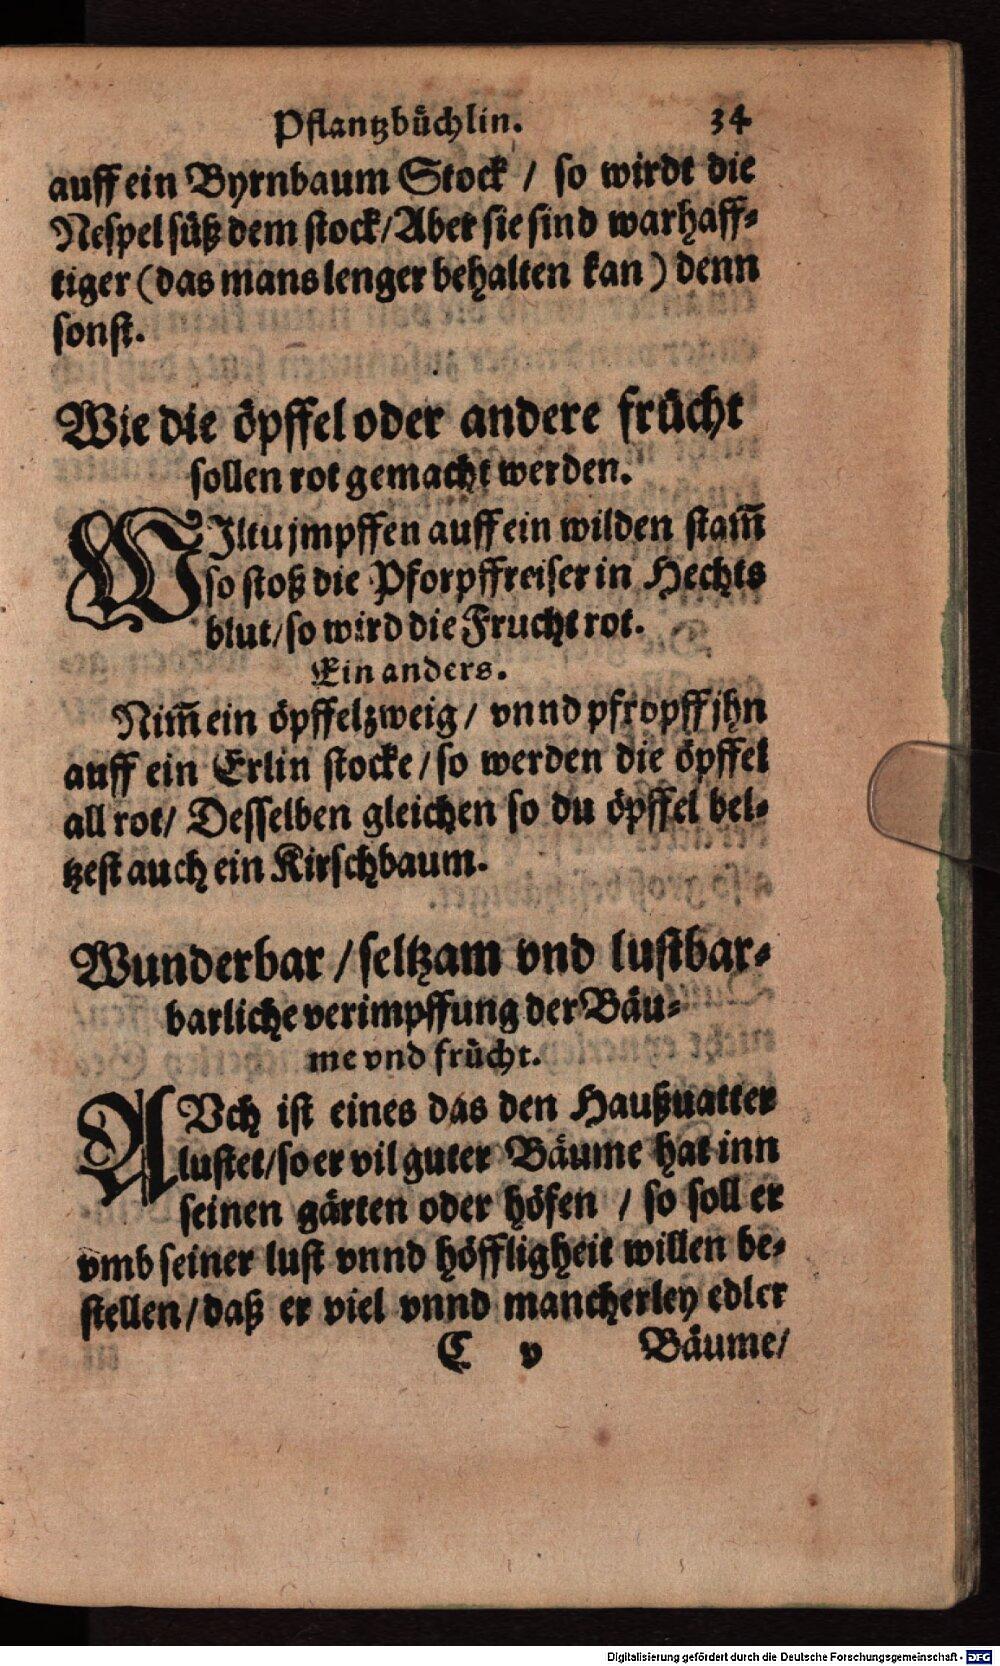 Pflantzbuͤchlin. 34
auff ein Byrnbaum Stock / so wirdt die
Nespel suͤß dem stock / Aber sie sind warhaff-
tiger (das mans lenger behalten kan) denn
sonst.
Wie die oͤpffel oder andere fruͤcht
sollen rot gemacht werden.
WIltu jmpffen auff ein wilden stam̃
so stoß die Pforpffreiser in Hechts
blut / so wird die Frucht rot.
Ein anders.
Nim̃ ein oͤpffelzweig / vnnd pfropff jhn
auff ein Erlin stocke / so werden die oͤpffel
all rot / Desselben gleichen so du oͤpffel bel-
tzest auch ein Kirschbaum.
Wunderbar / seltzam vnd lustbar-
barliche verimpffung der Baͤu-
me vnd fruͤcht.
AVch ist eines das den Haußuatter
lustet / so er vil guter Baͤume hat inn
seinen gaͤrten oder hoͤfen / so soll er
vmb seiner lust vnnd hoͤffligheit willen be-
stellen / daß er viel vnnd mancherley edler
C v Baͤume /
Digitalisierung gefördert durch die Deutsche Forschungsgemeinschaft - DFG